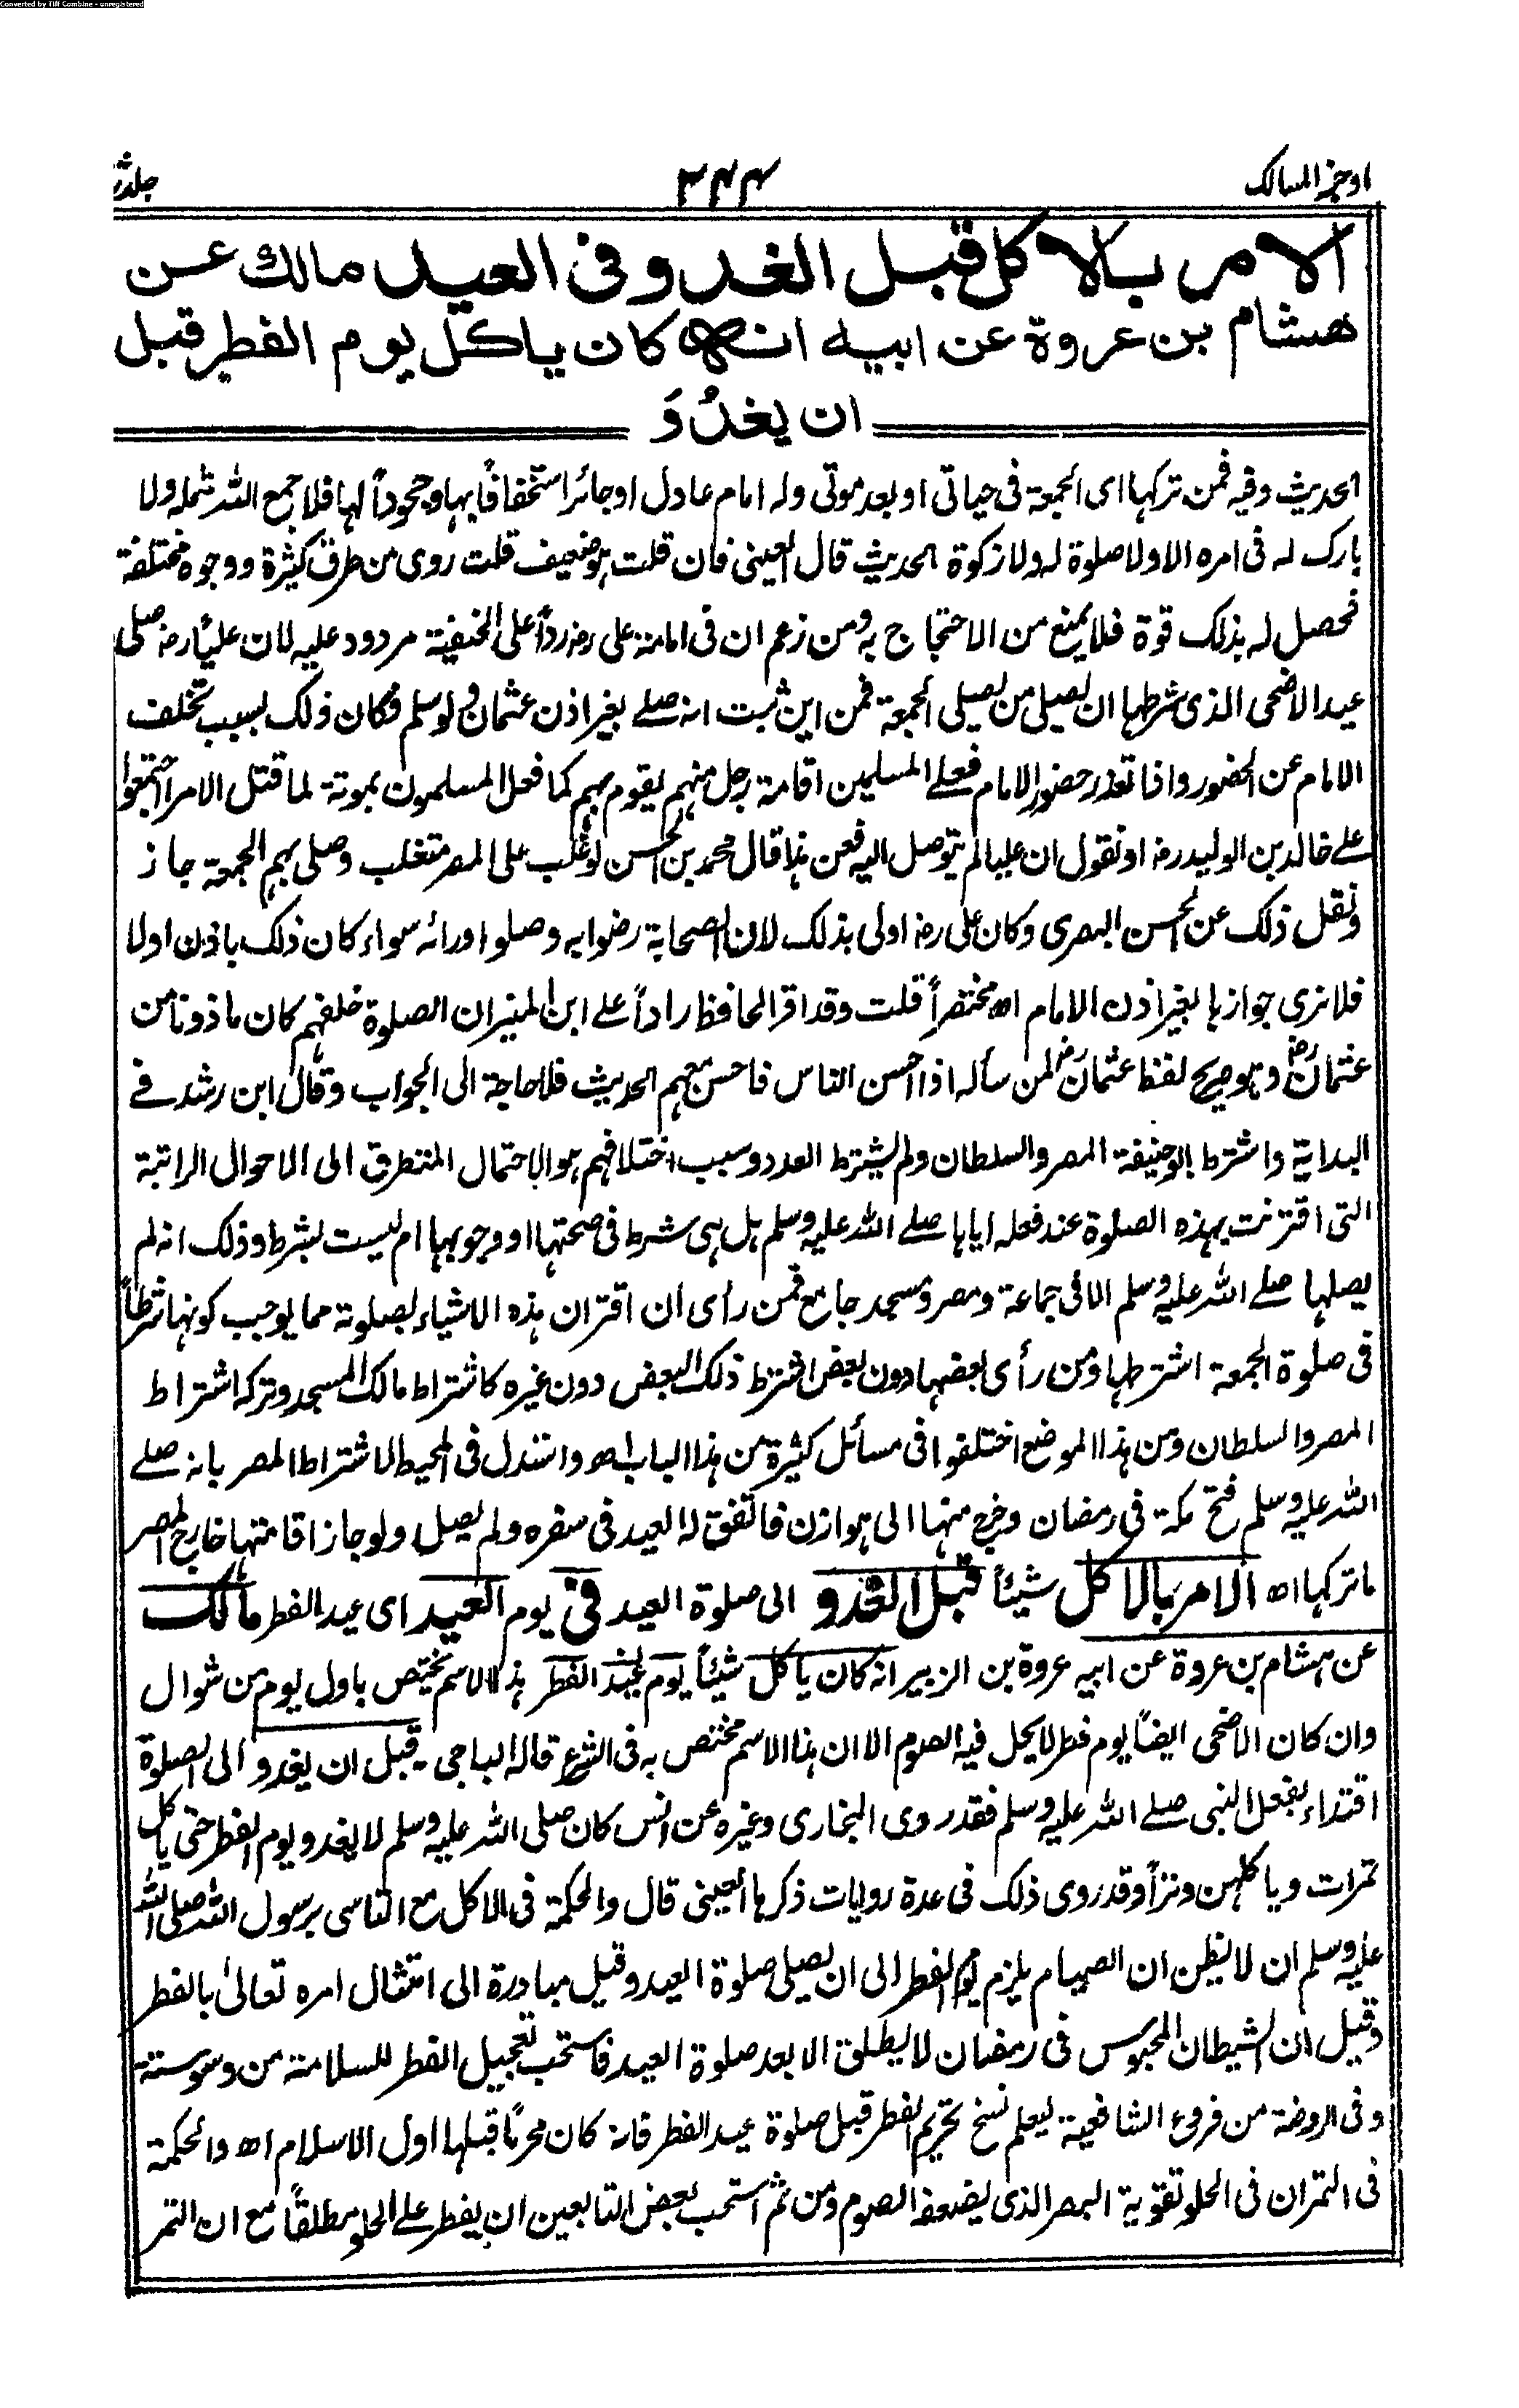 Converted by Tiff Combine - unregistered
اوجز المسالك
۳۴۴
جلد
الامر بالاكل قبل الغدو فى العيد مالك عن
هشام بن عروة عن ابيه انه كان ياكل يوم الفطر قبل
ان يغدُوَ
الحديث وفيه فمن تركها اى الجمعة فى حياتى او بعد موتى وله امام عادل او جائر استخفافاً بها وجحوداً لها فلا جمع الله شمله ولا
بارك له فى امره الا ولا صلوة له ولا زكوة الحديث قال العينى فان قلت هو ضعيف قلت روى من طرق كثيرة ووجوه مختلفة
فحصل له بذلك قوة فلا يمنع من الاحتجاج به ومن زعم ان فى امامة على رضـ رداً على الحنفية مردود عليه لان علياً رضـ صلى
عيد الاضحى الذى شرطها ان يصلى من يصلى الجمعة فمن اين ثبت انه صلے بغير اذن عثمان ولو سلم فكان ذلك بسبب تخلف
الامام عن الحضور واذا تعذر حضور الامام فعلے المسلمين اقامة رجل منهم يقوم بهم كما فعل المسلمون بموتة لما قتل الامرا اجتمعوا
علے خالد بن الوليد رضـ او نقول ان عليا لم يتوصل اليه فعن هذا قال محمد بن الحسن لو غلب على المصر متغلب وصلى بهم الجمعة جاز
ونقل ذلك عن الحسن البصرى وكان على رضـ اولى بذلك لان الصحابة رضوا به وصلوا ورائه سواء كان ذلك باذن اولا
فلا نرى جوازها بغير اذن الامام اھ مختصراً قلت وقد اقر الحافظ راداً علے ابن المنير ان الصلوة خلفهم كان ماذونا من
عثمان رض وهو صريح لفظ عثمان رض لمن سأله اذا احسن الناس فاحسن معهم الحديث فلا حاجة الى الجواب وقال ابن رشد فے
البداية واشترط ابو حنيفة المصر والسلطان ولم يشترط العدد وسبب اختلافهم هو الاحتمال المتطرق الى الاحوال الراتبة
التى اقترنت بهذه الصلوة عند فعله اياها صلے الله عليه وسلم هل هى شرط فى صحتها او وجوبها ام ليست بشرط وذلك انه لم
يصلها صلے الله عليه وسلم الا فى جماعة ومصر ومسجد جامع فمن رأى ان اقتران هذه الاشياء بصلوته مما يوجب كونها شرطاً
فى صلوة الجمعة اشترطها ومن رأى بعضها دون بعض اشترط ذلك البعض دون غيره كاشتراط مالك المسجد وتركه اشتراط
المصر والسلطان ومن هذا الموضع اختلفوا فى مسائل كثيرة من هذا الباب اھ واستدل فى المحيط لاشتراط المصر بانه صلے
الله عليه وسلم فتح مكة فى رمضان وخرج منها الى هوازن فاتفق له العيد فى سفره ولم يصل ولو جاز اقامتها خارج المصر
ما تركها اھ الامر بالاكل شيئاً قبل الغدو الى صلوة العيد فى يوم العيد اى عيد الفطر مالك
عن هشام بن عروة عن ابيه عروة بن الزبير انه كان ياكل شيئاً يوم عيد الفطر هذا الاسم يختص باول يوم من شوال
وان كان الاضحى ايضاً يوم فطر لا يحل فيه الصوم الا ان هذا الاسم مختص به فى الشرع قاله الباجى۔ قبل ان يغدو الى الصلوة
اقتداء بفعل النبى صلے الله عليه وسلم فقد روى البخارى وغيره عن انس كان صلى الله عليه وسلم لا يغدو يوم الفطر حتى ياكل
تمرات وياكلهن وتراً وقد روى ذلك فى عدة روايات ذكرها العينى قال والحكمة فى الاكل مع التاسى برسول الله صلى الله
عليه وسلم ان لا يظن ان الصيام يلزم يوم الفطر الى ان يصلى صلوة العيد وقيل مبادرة الى امتثال امره تعالىٰ بالفطر
وقيل ان الشيطان المحبوس فى رمضان لا يطلق الا بعد صلوة العيد فاستحب تعجيل الفطر للسلامة من وسوسته
وفى الروضة من فروع الشافعية ليعلم نسخ تحريم الفطر قبل صلوة عيد الفطر فانه كان محرماً قبلها اول الاسلام اھ والحكمة
فى التمر ان فى الحلو تقوية البصر الذى يضعفه الصوم ومن ثم استحب بعض التابعين ان يفطر علے الحلو مطلقاً مع ان التمر